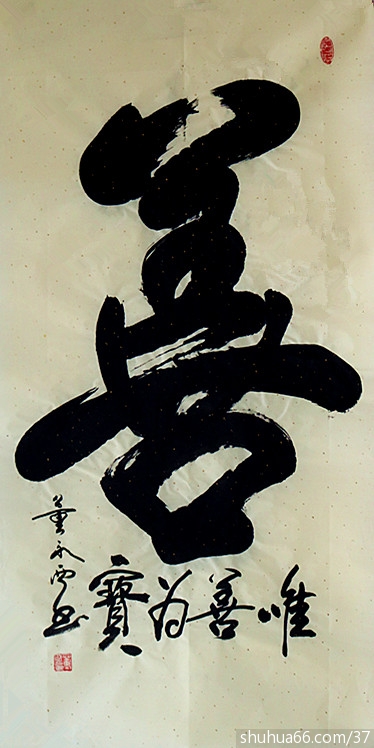 善
唯善为寶
董永西书
shuhua66.com/37